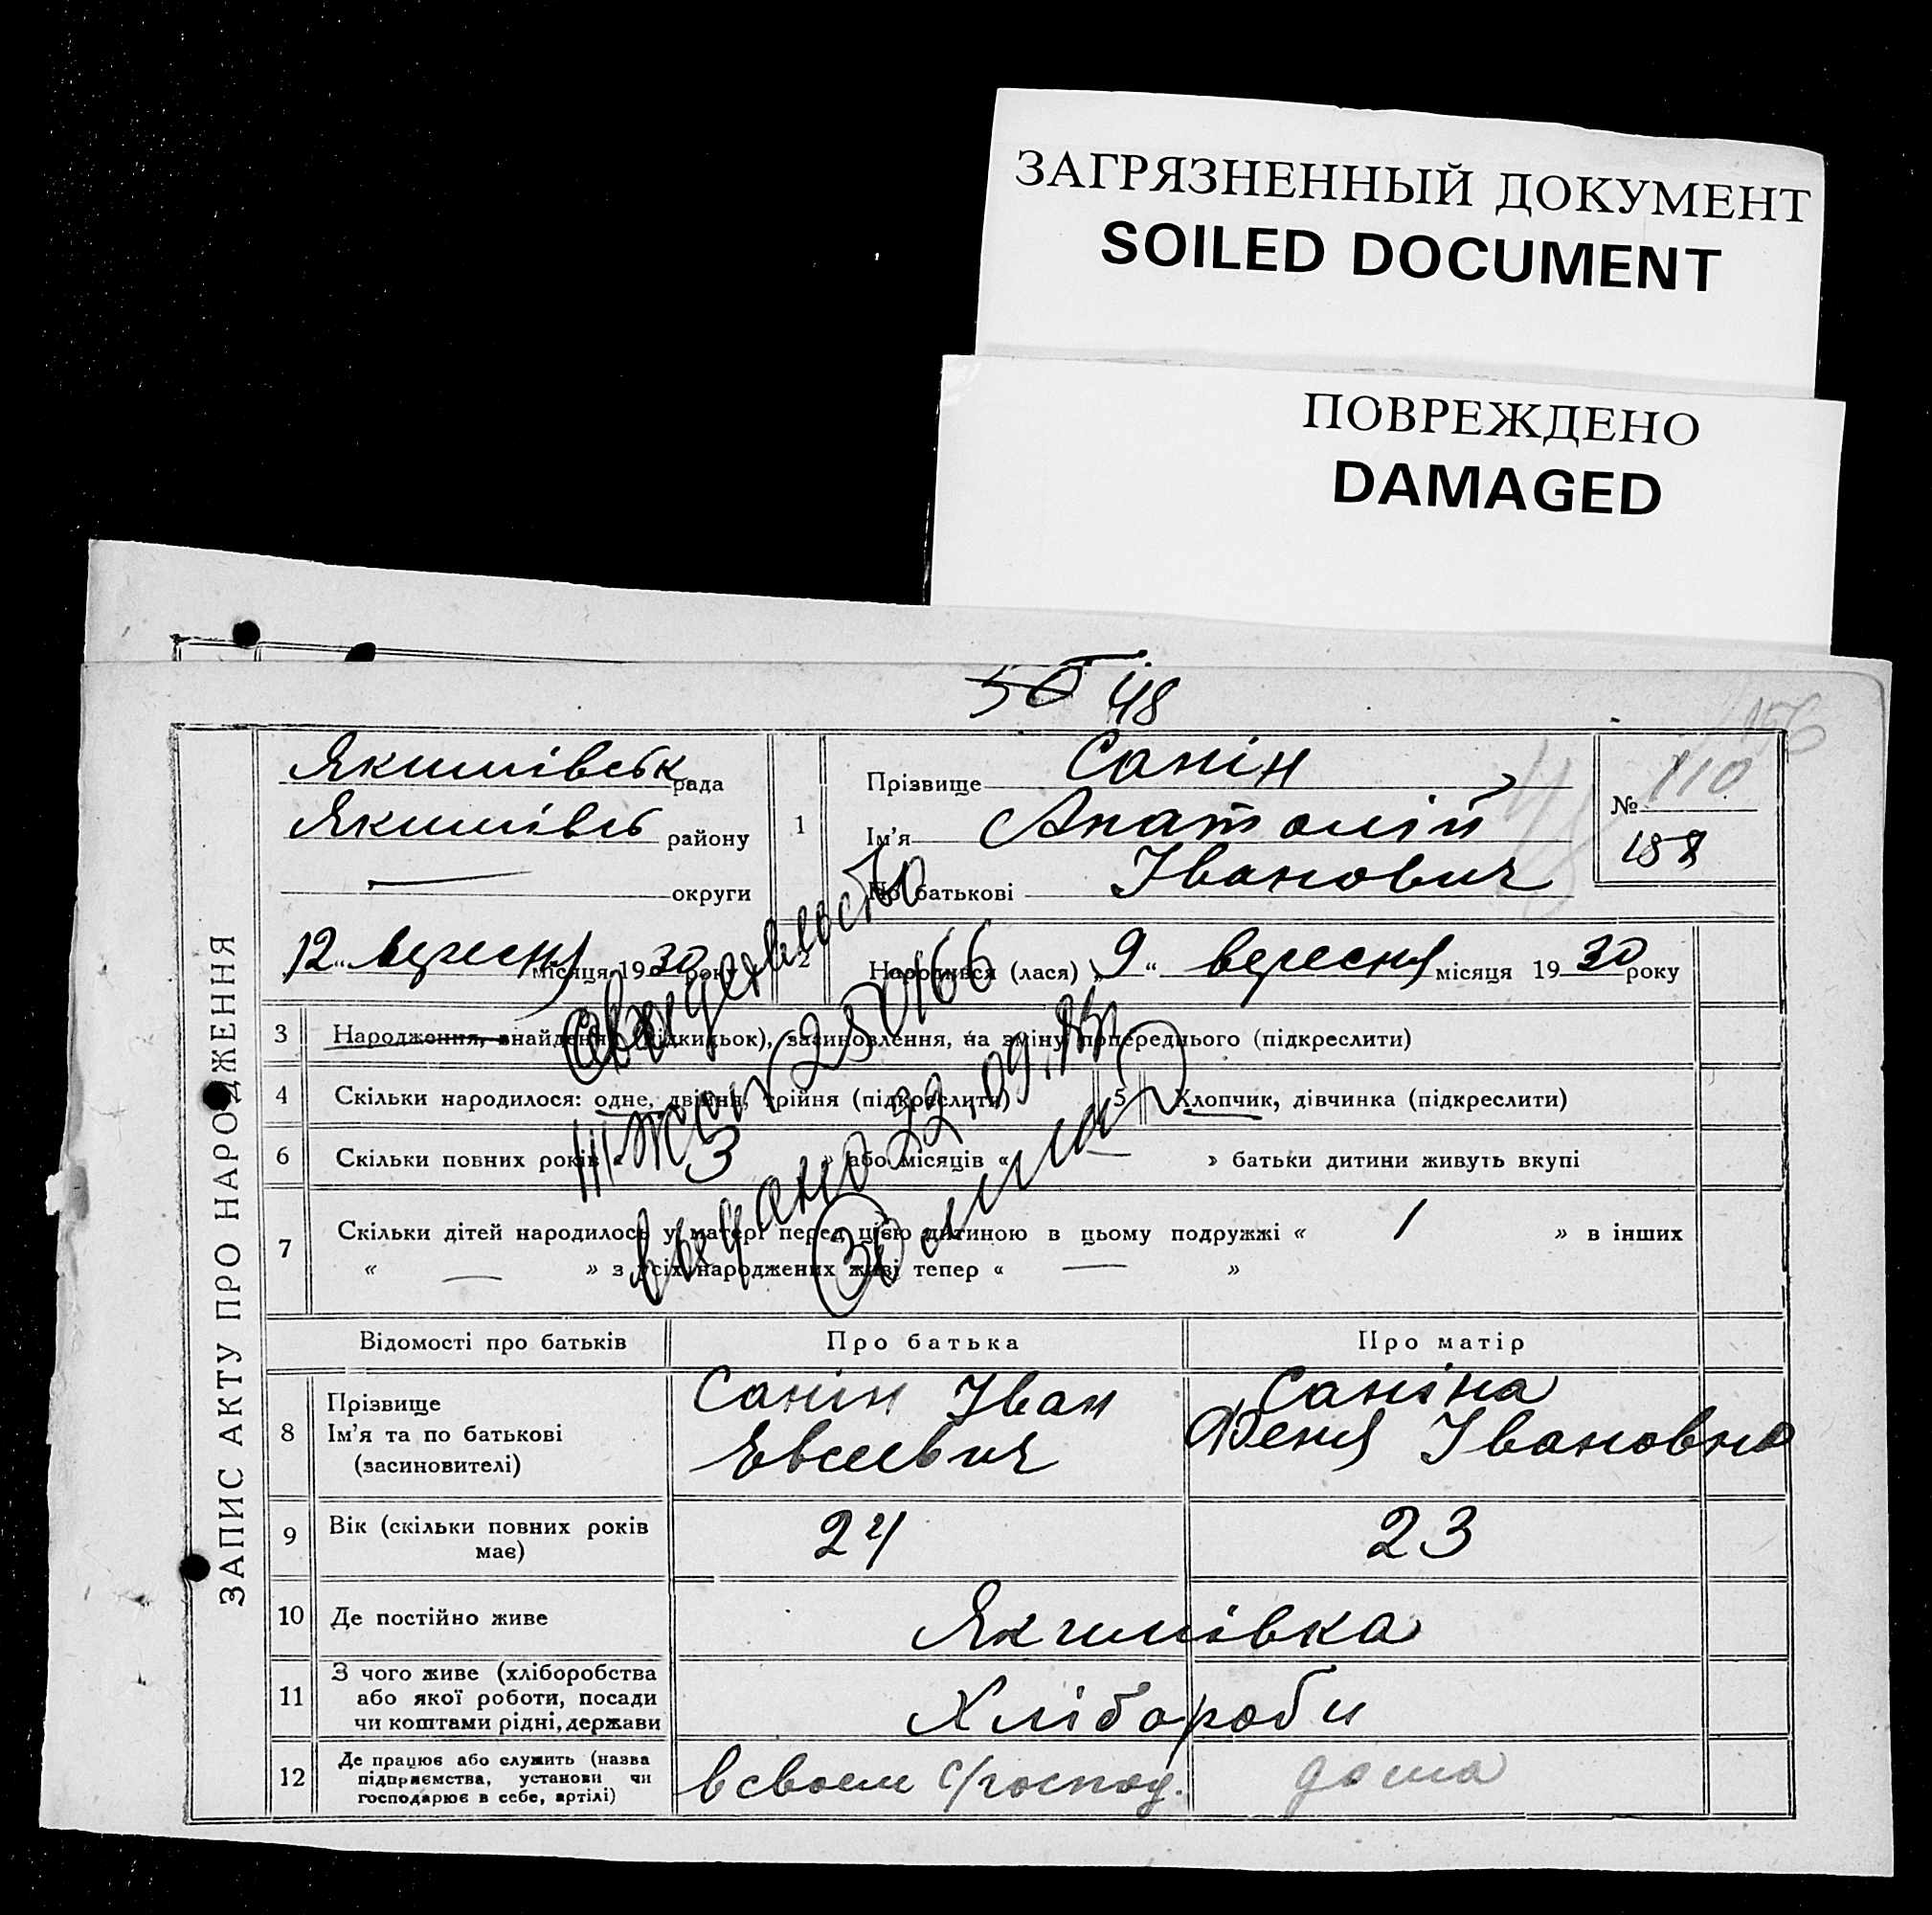 ЗАГРЯЗНЕННЫЙ ДОКУМЕНТ
SOILED DOCUMENT
ПОВРЕЖДЕНО
DAMAGED
50 48
156
ЗАПИС АКТУ ПРО НАРОДЖЕННЯ
Якимівськ рада
Якимівсь району
— округи
1
Прізвище Санін
Ім'я Анатолій
По батькові Іванович
№ 110
188
48
12 „ вересня місяця 1930 року
2
Народився (лася) „ 9 “ вересня місяця 1930 року
Свидетельство
250166
выдано 22.09.
3 Народження, знайдення (підкидьок), засиновлення, на зміну попереднього (підкреслити)
4 Скільки народилося: одне, двійня, трійня (підкреслити)
5 Хлопчик, дівчинка (підкреслити)
6 Скільки повних років « 3 » або місяців « — » батьки дитини живуть вкупі
7 Скільки дітей народилось у матері перед цією дитиною в цьому подружжі « 1 » в інших
« — » з усіх народжених живі тепер « — »
Відомості про батьків Про батька Про матір
8 Прізвище
Ім'я та по батькові
(засиновителі)
Санін Іван
Евсеевич
Саніна
Феня Івановна
9 Вік (скільки повних років
має)
24 23
10 Де постійно живе Якимівка
11 З чого живе (хліборобства
або якої роботи, посади
чи коштами рідні, держави
Хлібороби
12 Де працює або служить (назва
підприємства, установи чи
господарює в себе, артілі)
в своем с/господ. дома